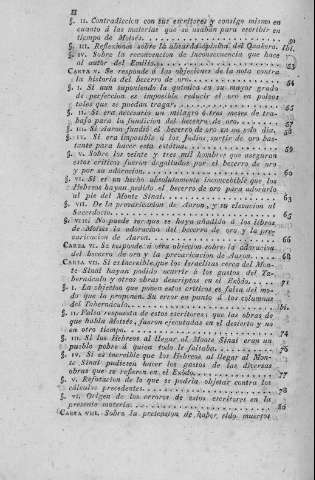 II
§. II. Contradiccion con sus escritores y consigo mismo en
cuanto á las materias que se usaban para escribir en
tiempo de Moisés.
§. III. Reflexiones sobre la absurda opinion del Quakero. Ibi.
§. IV. Sobre la reconvencion de inconsecuencia que hace
al autor del Emilio. 53
CARTA V. Se responde á las objeciones de la nota contra
la historia del becerro de oro. 54
§. I. Si aun suponiendo la quimica en su mayor grado
de perfeccion es imposible reducir el oro en polvos
tales que se puedan tragar.
§. II. Si era necesario un milagro ó tres meses de tra-
bajo para la fundicion del becerro de oro.
§. III. Si Aaron fundió el becerro de oro en un solo dia.
§. IV. Si era imposible á los Judios, surtir de oro bas-
tante para hacer esta estátua.
§. V. Sobre los veinte y tres mil hombres que aseguran
estos críticos fueron degollados por el becerro de oro
y por su adoracion. 60
§. VI. Si es un hecho absolutamente inconcebible que los
Hebreos hayan pedido el becerro de oro para adorarlo
al pie del monte Sinai. 63
§. VII. De la prevaricacion de Aaron, y su elevacion al
Sacerdocio. 65
§. VIII. No puede ser que se haya añadido á los libros
de Moisés la adoracion del becerro de oro y la pre-
varicacion de Aaron. 66
CARTA VI. Se responde á otra objecion sobre la adoracion
del becerro de oro y la prevaricacion de Aaron. 68
CARTA VII. Si es increible, que los Israelitas cerca del Mon-
te Sinai hayan podido ocurrir á los gastos del Ta-
bernáculo y otras obras descriptas en el Exôdo. 71
§. I. La objecion que ponen estos críticos es falsa del mo-
do que la proponen. Su error en punto á las columnas
del Tabernáculo. Ibi.
§. II. Falsa respuesta de estos escritores: que las obras de
que habla Moisés, fueron ejecutadas en el desierto y no
en otro tiempo. 74
§. III. Si los Hebreos al llegar al Monte Sinai eran un
pueblo pobre á quien todo le faltaba. 76
§. IV. Si es increible que los Hebreos al llegar al Mon-
te Sinai pudiesen hacer los gastos de las diversas
obras que se refieren en el Exôdo. 77
§. V. Refutacion de lo que se podria objetar contra los
cálculos precedentes. 78
§. VI. Origen de los errores de estos escritores en la
presente materia. 80
CARTA VIII. Sobre la pretension de haber sido muertos